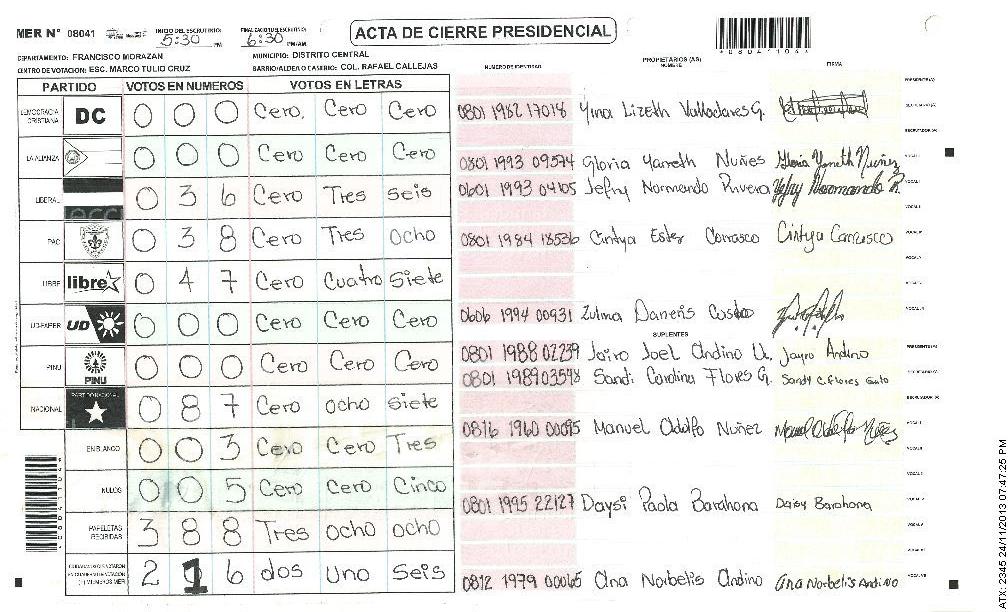 MER N° 08041 INICIO DEL ESCRUTINIO: 5:30 PM FINALIZACION DEL ESCRUTINIO: 6:30 PM/AM ACTA DE CIERRE PRESIDENCIAL
DEPARTAMENTO: FRANCISCO MORAZAN MUNICIPIO: DISTRITO CENTRAL
CENTRO DE VOTACION: ESC. MARCO TULIO CRUZ BARRIO/ALDEA O CASERIO: COL. RAFAEL CALLEJAS
NUMERO DE IDENTIDAD PROPIETARIOS (AS) NOMBRE FIRMA
PARTIDO VOTOS EN NUMEROS VOTOS EN LETRAS
DEMOCRACIA CRISTIANA DC 0 0 0 Cero, Cero Cero
LA ALIANZA 0 0 0 Cero Cero Cero
LIBERAL 0 3 6 Cero Tres seis
PAC 0 3 8 Cero Tres ocho
LIBRE libre 0 4 7 Cero Cuatro Siete
UD-FAPER UD 0 0 0 Cero Cero Cero
PINU PINU 0 0 0 Cero Cero Cero
NACIONAL PARTIDO NACIONAL 0 8 7 Cero ocho siete
EN BLANCO 0 0 3 Cero Cero Tres
NULOS 0 0 5 Cero Cero Cinco
PAPELETAS RECIBIDAS 3 8 8 Tres ocho ocho
2 1 6 dos Uno Seis
0801 1982 17018 Yina Lizeth Valladares G.
0801 1993 09574 Gloria Yaneth Nuñes Gloria Yaneth Nuñez
0601 1993 04105 Jefry Normando Rivera Jefry Normando R.
0801 1984 18536 Cintya Ester Carrasco Cintya Carrasco
0606 1994 00931 Zulma Daneris
SUPLENTES
0801 1988 02239 Jairo Joel Andino U. Jayro Andino
0801 1989 03598 Sandi Carolina Flores G. Sandy C. Flores
0816 1960 00095 Manuel Adolfo Nuñez Manuel Adolfo Nuñez
0801 1995 22127 Daysi Paola Barahona Daisy Barahona
0812 1979 00065 Ana Norbelis Andino Ana Norbelis Andino
PRESIDENTE(A)
SECRETARIO(A)
ESCRUTADOR (A)
VOCAL I
0804110
ATX: 2345 24/11/2013 07:47:25 PM